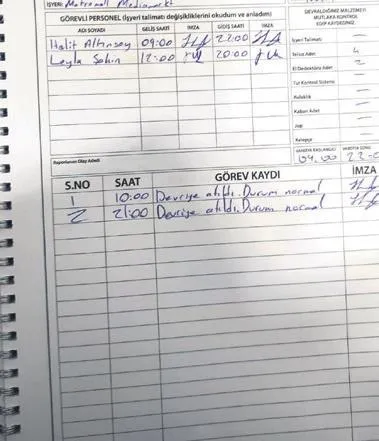 İŞYERİ: Metromall Mediamarkt
GÖREVLİ PERSONEL (İşyeri talimatı değişikliklerini okudum ve anladım)
ADI SOYADI GELİŞ SAATİ İMZA GİDİŞ SAATİ İMZA
Halit Altınsoy 09:00 22:00
Leyla Şahin 12:00 20:00
DEVRALDIĞINIZ MALZEMEYİ
MUTLAKA KONTROL
EDİP KAYDEDİNİZ
İşyeri Talimatı —
Telsiz Adet 4
El Dedektörü Adet 2
Tur Kontrol Sistemi —
Kulaklık —
Kaban Adet —
—
Kelepçe —
VARDİYA BAŞLANGICI VARDİYA SONU
09.00 22-0
Raporlanan Olay Adedi
S.NO SAAT GÖREV KAYDI İMZA
1 10:00 Devriye atıldı. Durum normal
2 21:00 Devriye atıldı. Durum normal